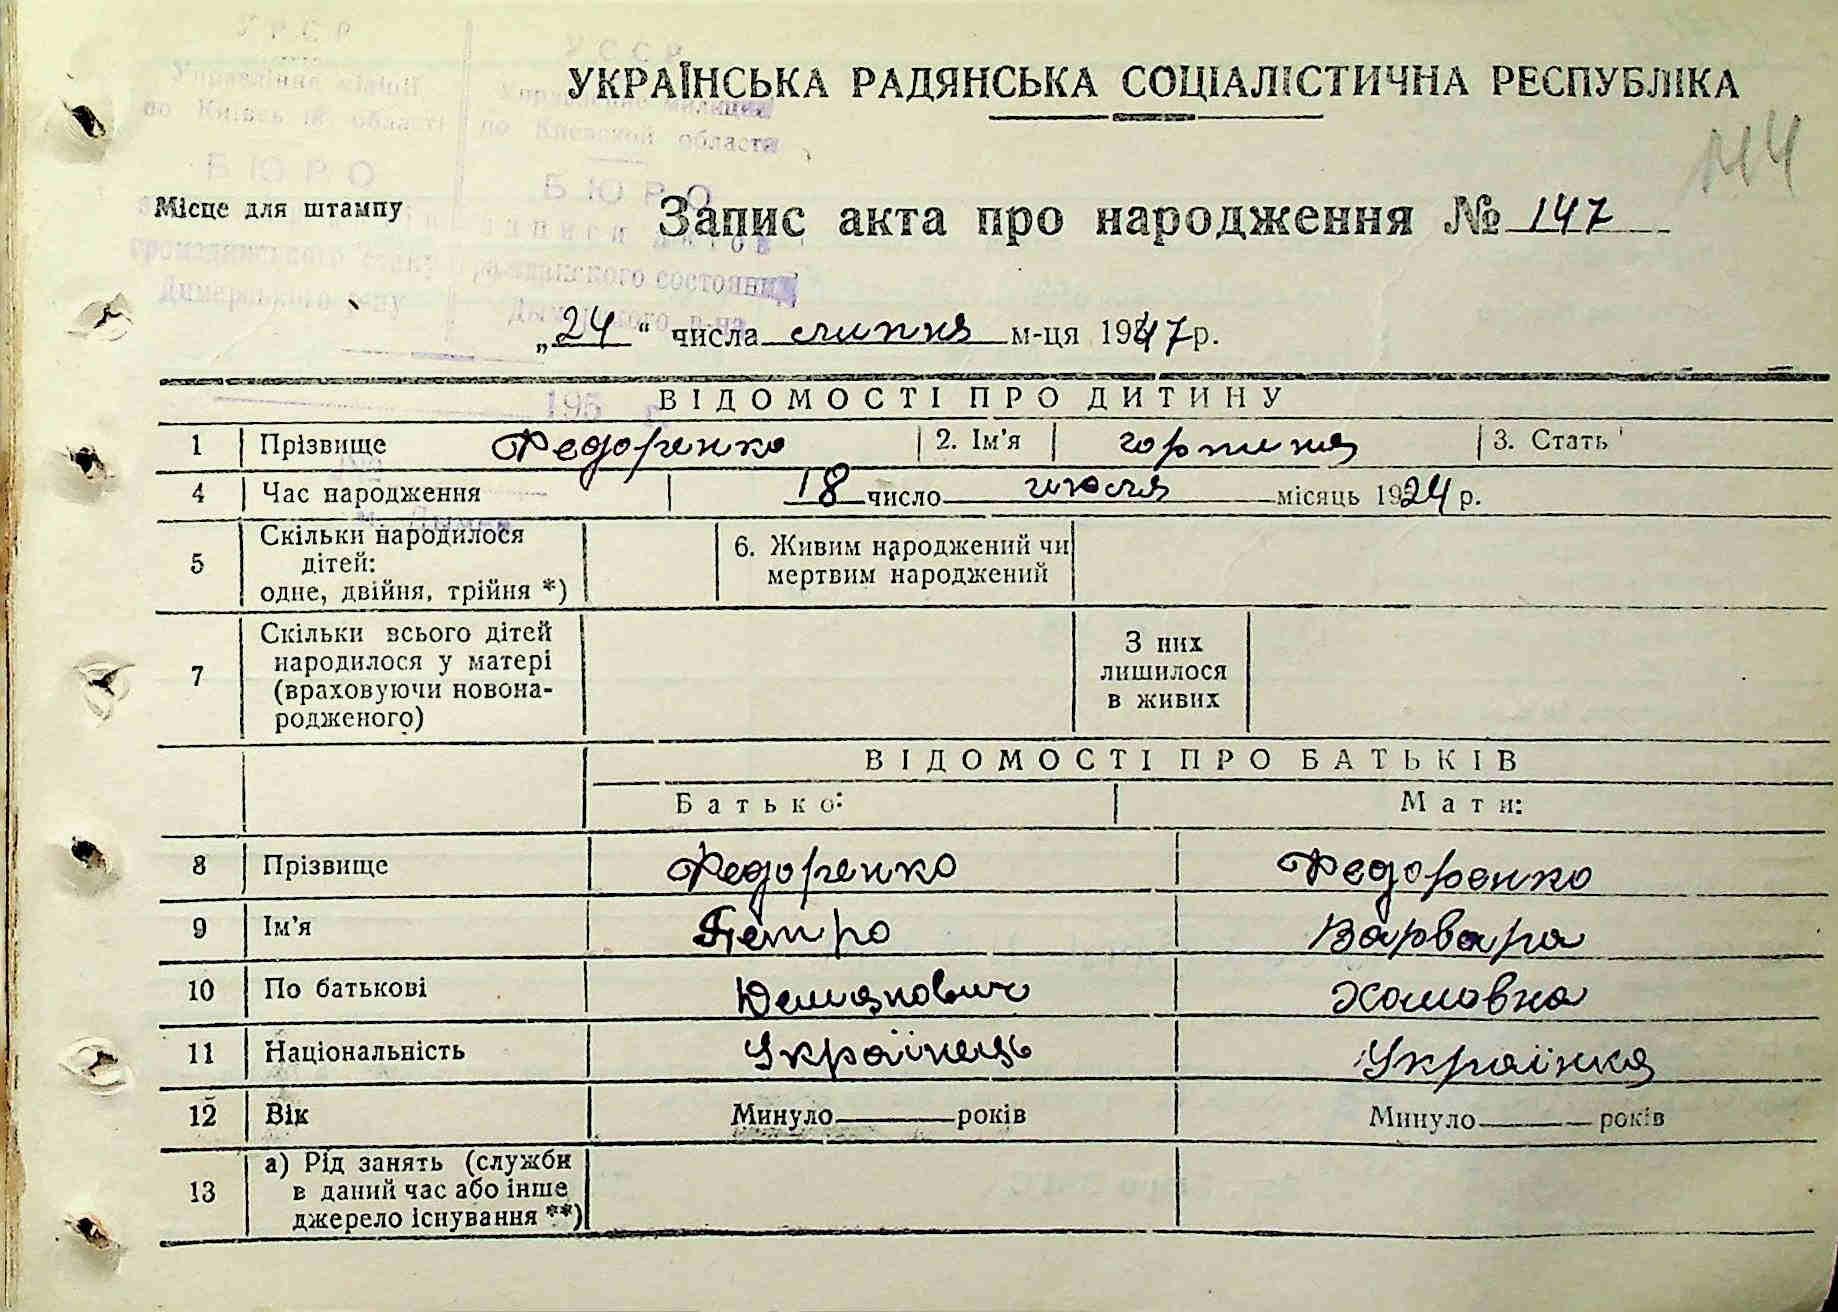 УРСР
УССР
Управління міліції
по Київській області
Управление милиции
по Киевской области
БЮРО
БЮРО
громадянського стану
Димерського р-ну
записи актов
гражданского состояния
Дымерского р-на
195 г.
УКРАЇНСЬКА РАДЯНСЬКА СОЦІАЛІСТИЧНА РЕСПУБЛІКА
Місце для штампу
Запис акта про народження № 147
„24“ числа липня м-ця 1947 р.
ВІДОМОСТІ ПРО ДИТИНУ
1 Прізвище Федоренко 2. Ім’я горпина 3. Стать
4 Час народження 18 число июля місяць 1924 р.
5 Скільки народилося дітей: одне, двійня, трійня *) 6. Живим народжений чи мертвим народжений
7 Скільки всього дітей народилося у матері (враховуючи новона-родженого) З них лишилося в живих
ВІДОМОСТІ ПРО БАТЬКІВ
Батько: Мати:
8 Прізвище Федоренко Федоренко
9 Ім’я Петро Варвара
10 По батькові Демянович Хомовна
11 Національність Українець Українка
12 Вік Минуло років Минуло років
13 а) Рід занять (служби в даний час або інше джерело існування **)